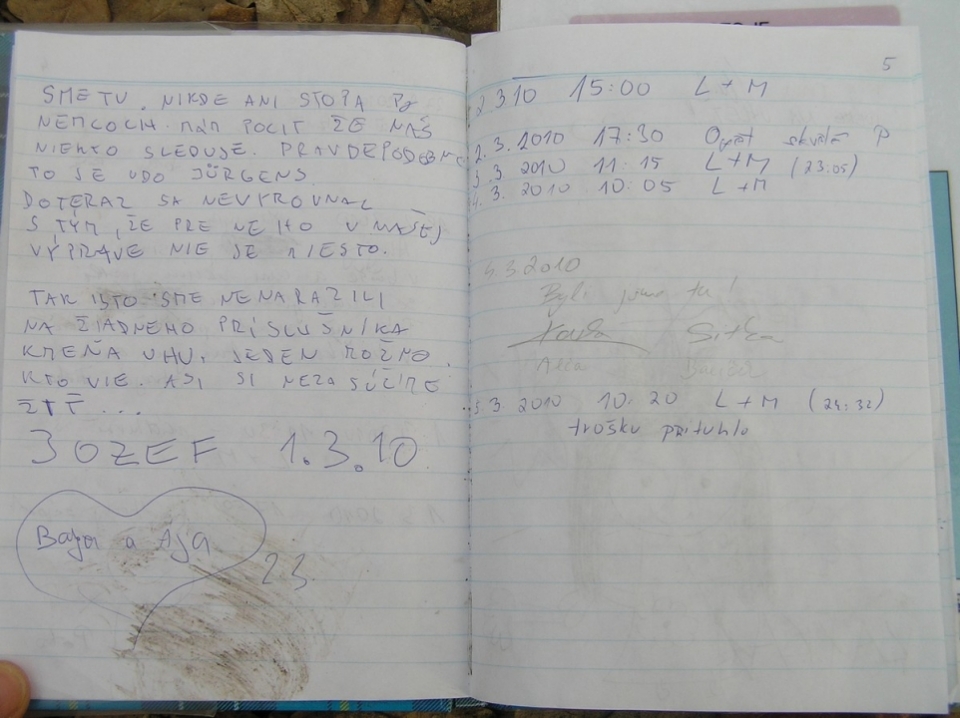 SME TU. NIKDE ANI STOPA PO
NEMCOCH. MÁM POCIT ŽE NÁS
NIEKTO SLEDUJE. PRAVDEPODOBNE
TO JE UDO JÜRGENS.
DOTERAZ SA NEVYROVNAL
S TÝM, ŽE PRE NEHO V NAŠEJ
VÝPRAVE NIE JE MIESTO.
TAK ISTO SME NENARAZILI
NA ŽIADNEHO PRÍSLUŠNÍKA
KMEŇA UHU. JEDEN MOŽNO.
KTO VIE. ASI SI NEZASÚŤIME
JOZEF 1.3.10
a Ája
23
5
2.3.10 15:00 L+M
2.3.2010 17:30 Opět skvělá P
3.3.2010 11:15 L+M (23:05)
4.3.2010 10:05 L+M
3.2010
Byli jsme tu!
5 3. 2010 10:20 L+M (24:32)
trošku přituhlo